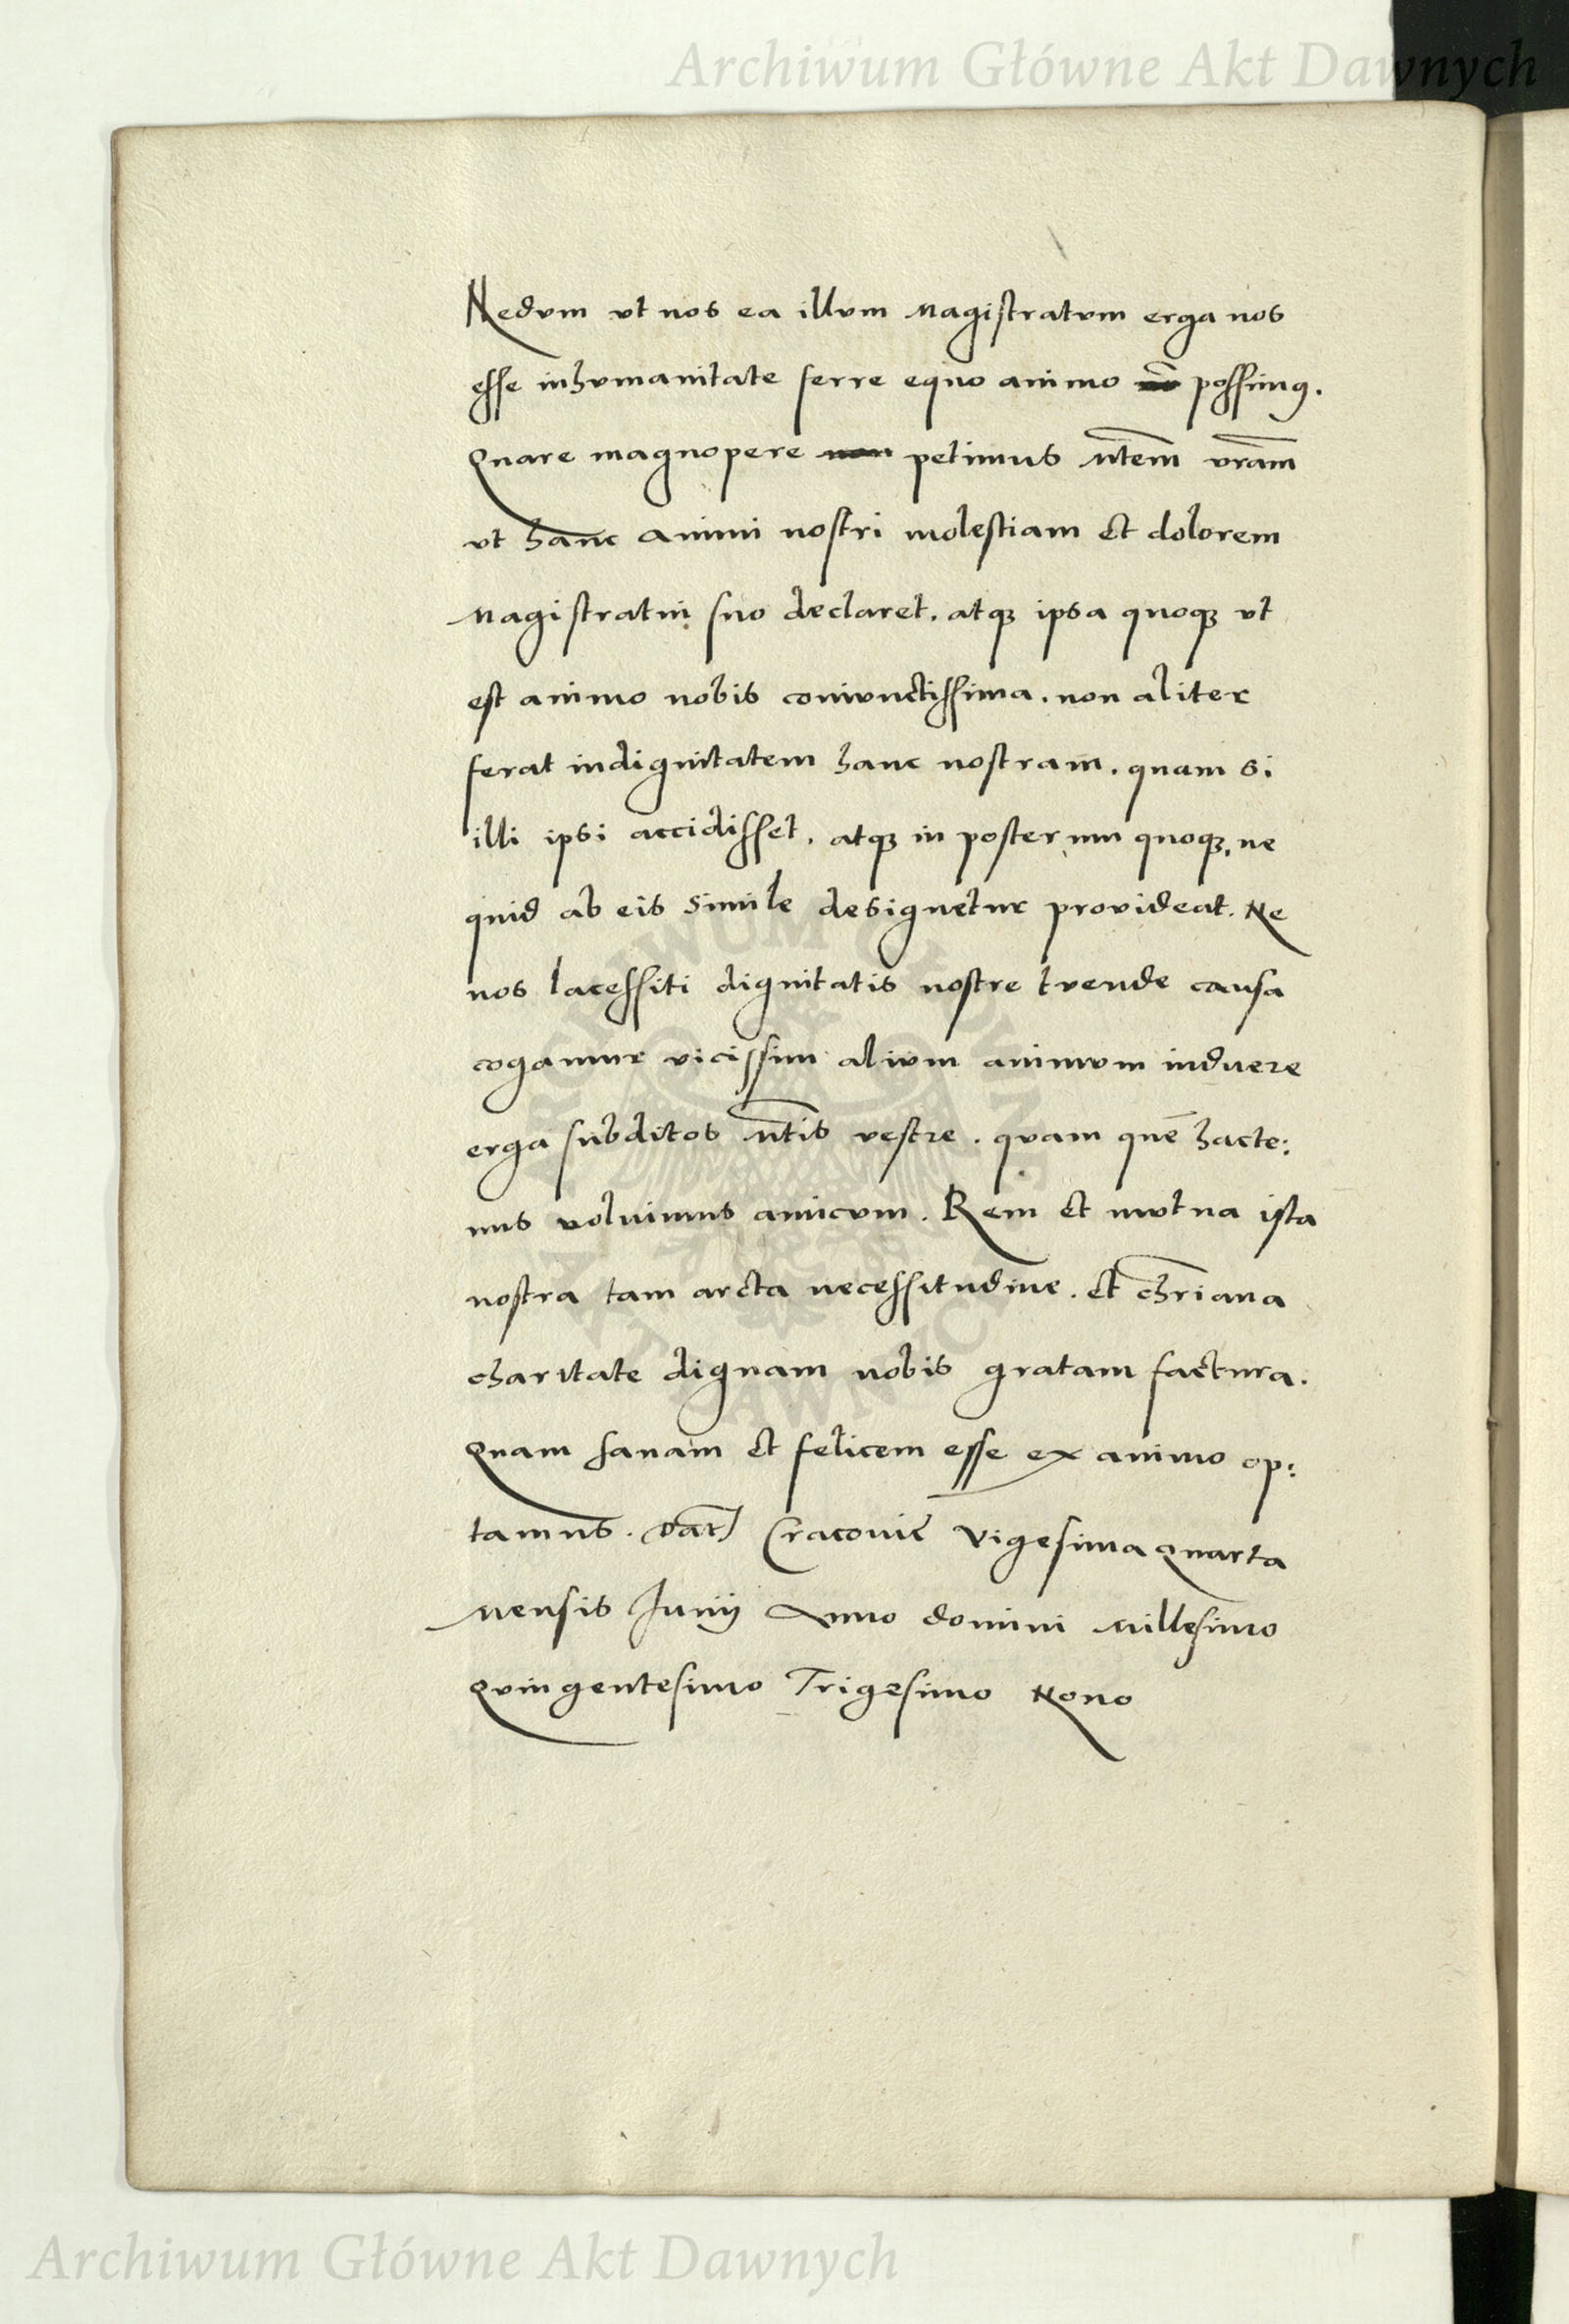 Archiwum Główne Akt Dawnych
Nedum ut nos ea illum Magistratum erga nos
esse inhumanitate ferre equo animo possimus.
Quare magnopere petimus Mtem vram
ut hanc animi nostri molestiam et dolorem
Magistratui suo declaret. atque ipsa quoque ut
est animo nobis coniunctissima. non aliter
ferat indignitatem hanc nostram. quam si
illi ipsi accidisset. atque in posterum quoque, ne
quid ab eis simile designetur provideat. Ne
nos lacessiti dignitatis nostre tuende causa
cogamur vicissim alium animum induere
erga subditos Mtis vestre. quam quē hacte:
nus voluimus amicum. Rem et mutua ista
nostra tam arcta necessitudine. et chriana
charitate dignam nobis gratam factura.
Quam sanam et felicem esse ex animo op:
tamus. Dat Cracovie Vigesima quarta
Mensis Junij Anno domini Millesimo
Quingentesimo Trigesimo Nono
Archiwum Główne Akt Dawnych